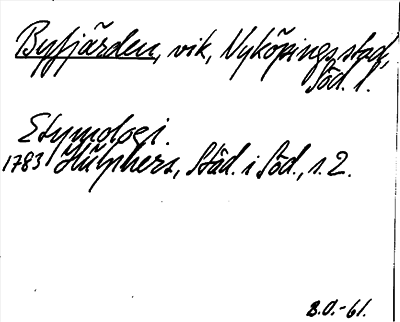 Byfjärden, vik, Nyköpings stad,
Söd. l.
Etymologi.
1783 Hülphers, Städ. i Söd., s. 2.
B.O.-61.